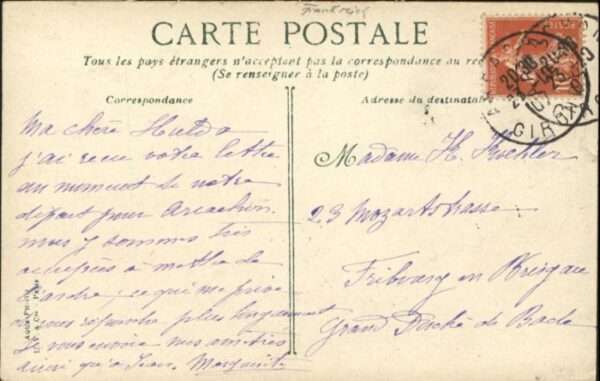 Frankreich
CARTE POSTALE
Tous les pays étrangers n'acceptent pas la correspondance au re
(Se renseigner à la poste)
Correspondance
Adresse du destinatai
Ma chère Hulda
j'ai reçu votre lettre
au moment de notre
départ pour Arcachon.
nous y sommes très
occupées à mettre de
l'ordre, ce qui me prive
vous répondre plus longuement
Je vous envoie mes amitiés
ainsi qu'à Jean. Marguerite
Madame H. Kuehler
23 Mozartstrasse
Fribourg en Brisgau
Grand Duché de Bade
GIRONDE